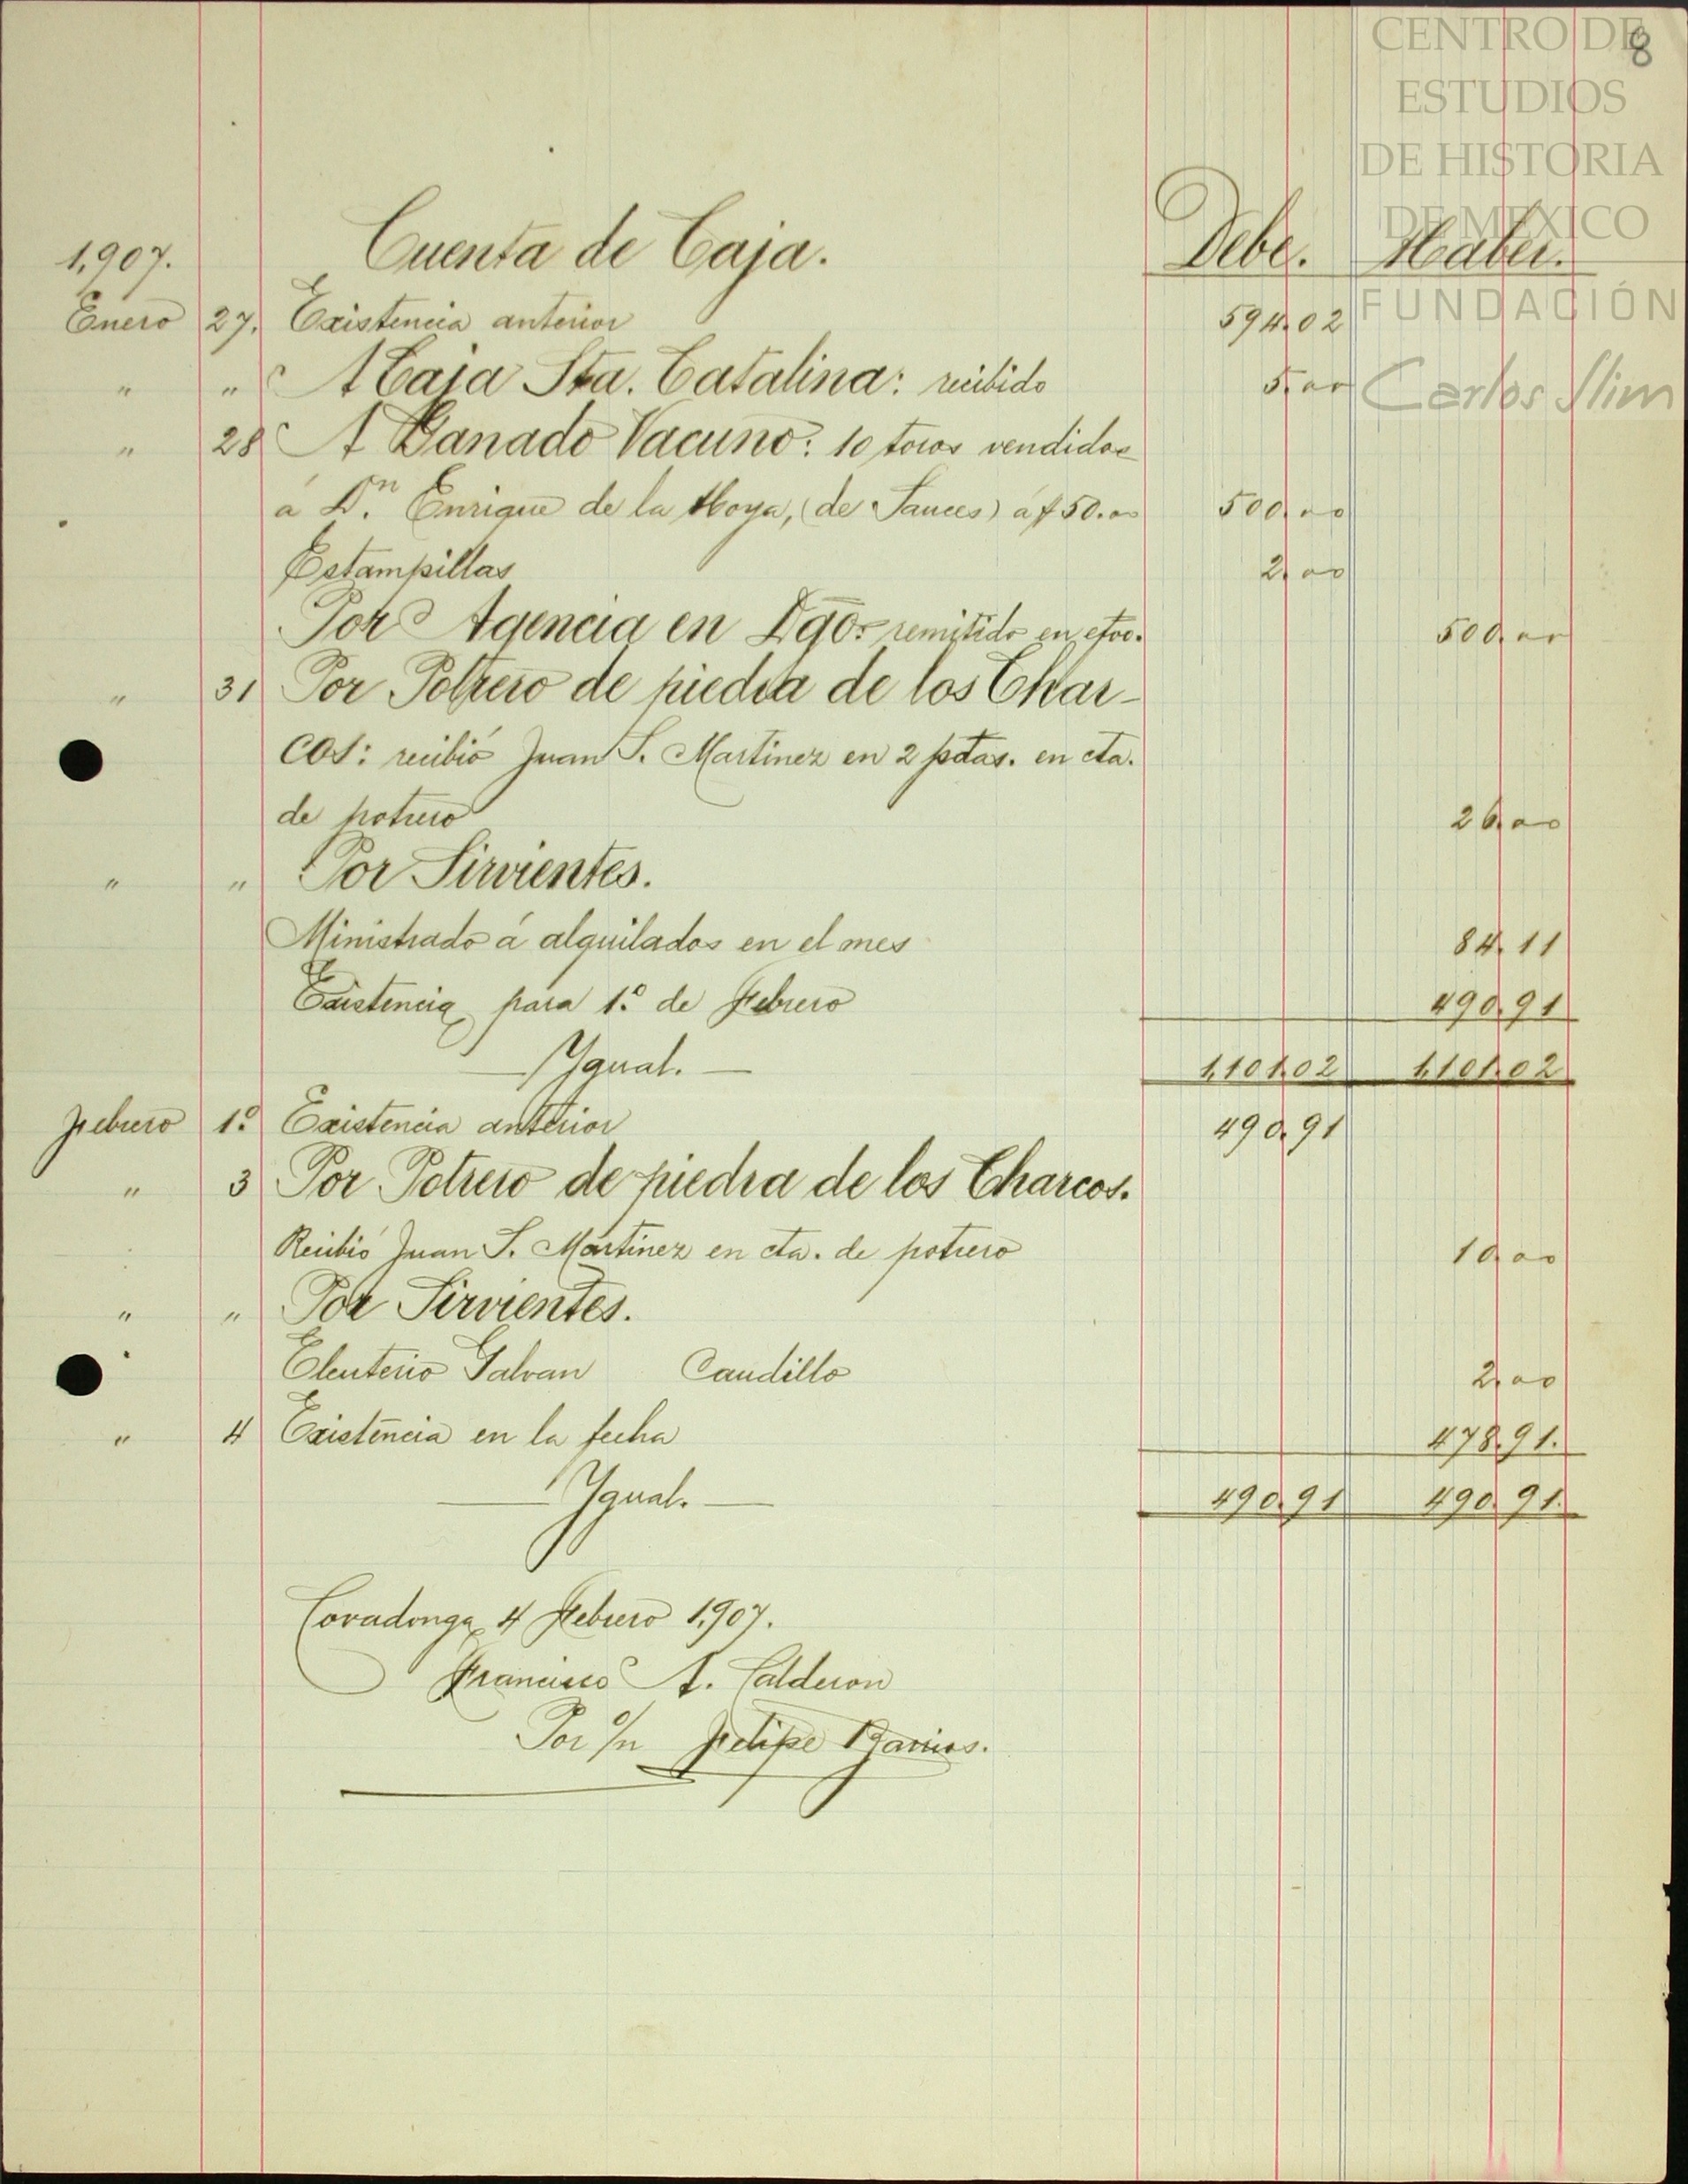 CENTRO DE
ESTUDIOS
DE HISTORIA
DE MÉXICO
FUNDACIÓN
Carlos Slim
8
1,907. Cuenta de Caja. Debe. Haber.
Enero 27. Existencia anterior 594.02
" " A Caja Sta. Catalina: recibido 5.00
" 28 A Ganado Vacuno: 10 toros vendidos
á Dn. Enrique de la Hoya, (de Sauces) á $50.00 500.00
Estampillas 2.00
Por Agencia en Dgo: remitido en efvo. 500.00
" 31 Por Potrero de piedra de los Char-
cos: recibió Juan S. Martinez en 2 ptdas. en cta.
de potrero 26.00
" " Por Sirvientes.
Ministrado á alquilados en el mes 84.11
Existencia para 1º de Febrero 490.91
Ygual. 1,101.02 1,101.02
Febrero 1º Existencia anterior 490.91
" 3 Por Potrero de piedra de los Charcos.
Recibió Juan S. Martinez en cta. de potrero 10.00
" " Por Sirvientes.
Eleuterio Galvan Caudillo 2.00
" 4 Existencia en la fecha 478.91.
Ygual. 490.91 490.91.
Covadonga, 4 Febrero 1,907.
Francisco A. Calderon
Por o/n Felipe Barrios.